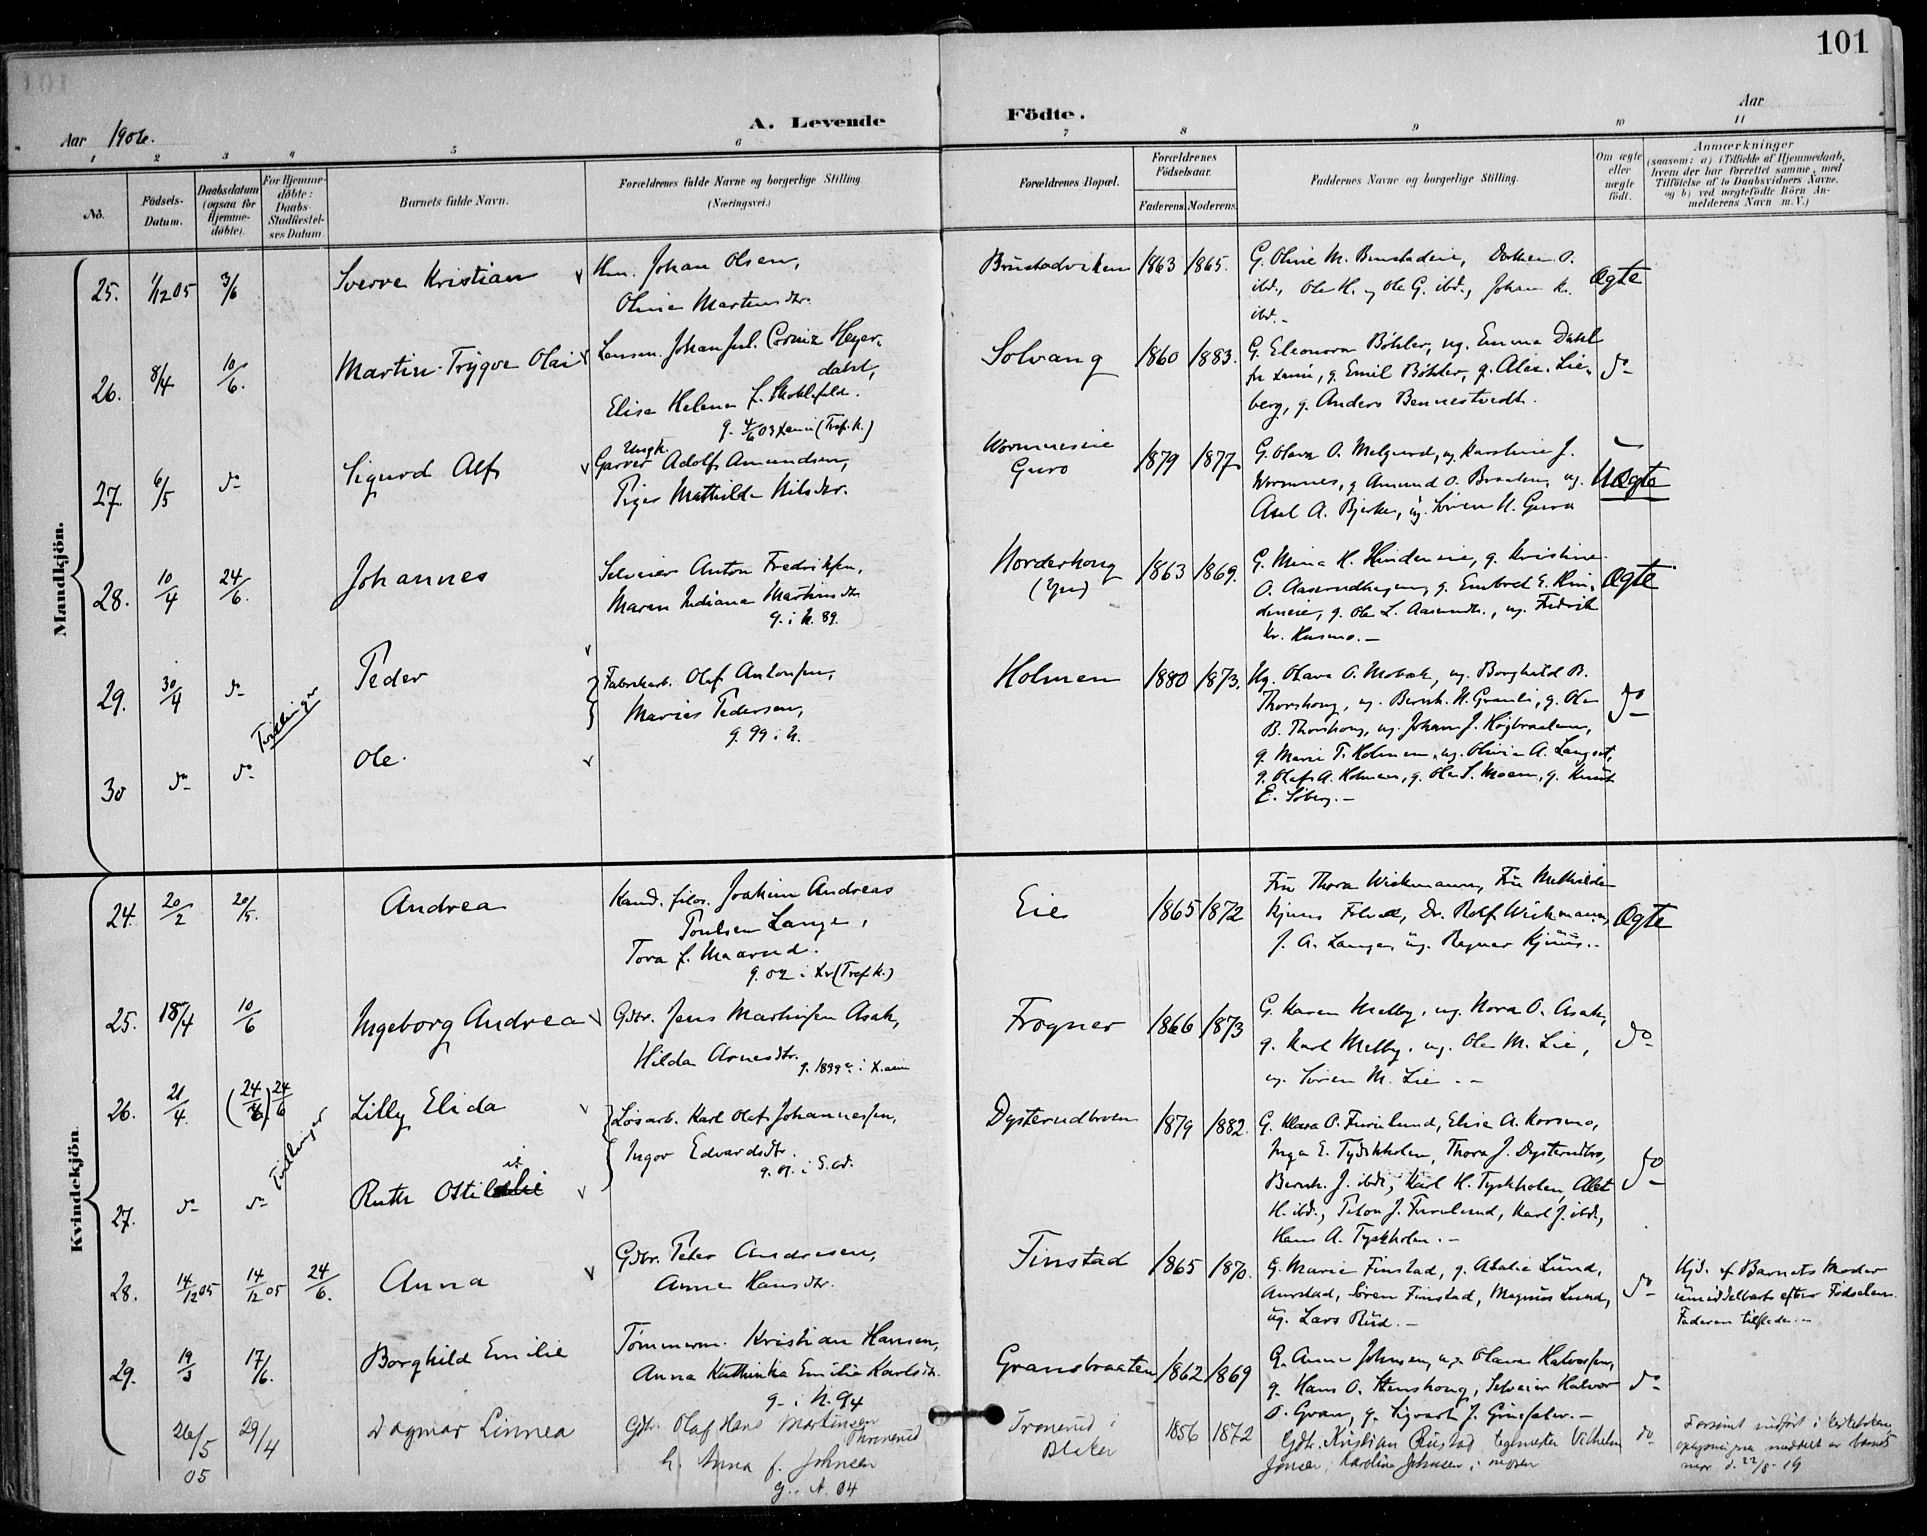 101
Aar 1906.
A. Levende
Födte.
Aar
1 2 3 4 5 6 7 8 9 10 11
No.
Födsels-
Datum.
Daabsdatum
(ogsaa för
Hjemme-
döbte).
For Hjemme-
döbte:
Daabs-
Stadfæstel-
ses Datum
Barnets fulde Navn.
Forældrenes fulde Navne og borgerlige Stilling.
(Næringsvei.)
Forældrenes Bopæl.
Forældrenes
Födselsaar.
Faderens. Moderens.
Faddernes Navne og borgerlige Stilling.
Om ægte
eller
uægte
födt.
Anmærkninger
(saasom: a) i Tilfælde af Hjemmedaab,
hvem der har forrettet samme, med
Tilföielse af to Daabsvidners Navne,
og b) ved uægtefödte Börn An-
melderens Navn m. V.)
Mandkjön.
25. 1/12 05 3/6 Sverre Kristian
Hm. Johan Olsen,
Oline Martinsdtr.
Brustadviken 1863 1865.
G. Oline M. Brustadeie, O.
ibd., Ole H. og Ole G. ibd., Johan K.
ibd.
Ægte
26. 8/4 10/6. Martin Trygve Olai
Lensm. Johan Jul. Heyer-
dahl,
Elise Helene f. Stoltefeldt.
g. 4/6 03 (Trof. K.)
Solvang 1860 1883.
G. Eleonora Böhler, ug. Emma Dahl
g. Emil Böhler, g. Alex. Lie-
berg, g. Anders Bennestvedt.
do
27. 6/5 do Sigurd Alf
Ungk.
Garver Adolf Amundsen,
Pige Mathilde Nilsdtr.
Wormneseie
Guro 1879 1877.
G. Olava O. Melgaard, ug. Karoline J.
Wormnes, g. Amund O. Braaten, ug.
Axel A. Bjerke, ug. Sören H. Guro
Uægte
28. 10/4 24/6. Johannes
Selveier Anton Fredriksen,
Maren Indiana Martinsdtr.
g. i N. 89.
Norderhoug
1863 1869.
G. Mina K. Hindeneie, g. Kristine
O. Aaserudhagen, g. Embret E. Hin-
deneie, g. Ole L. Aaserudh., ug. Fredrik
Kr. Husmo.
Ægte
29. 30/4 do Peder
Tvillinger
Fabrikarb. Olaf Antonsen,
Marie Pedersen,
g. 99 i N.
Holmen 1880 1873.
Ug. Olava O. Mobæk, ug. Borghild B.
Thorshoug, ug. Bernh. H. Granli, g. Ole
B. Thorshoug, ug. Johan J. Högbraaten,
g. Marie T. Holmen, ug. Olivia A. Langset,
g. Olaf A. Holmen, g. Ole S. Moen, g. Knut
E. Söberg.
do
30 do do Ole.
Kvindekjön.
24. 20/2 20/5. Andrea
Kand. filos. Joakim Andreas
Poulsen Lange,
Tora f. Maarud.
g. 02 i Kr (Trof. K.)
Eie 1865 1872
Fru Thora Wickmann, Fru Mathilde
Kjuus Dr. Rolf Wickmann,
J. A. Lange, ug. Ragnar Kjuus.
Ægte
25. 18/4 10/6 Ingeborg Andrea
Gdbr. Jens Martinsen Asak,
Hilda Arnesdtr.
g. 1899
Frogner 1866 1873
G. Karen Melby, ug. Nora O. Asak,
g. Karl Melby, ug. Ole M. Lie,
ug. Sören M. Lie.
do
26. 21/4. (24/6) 24/6 Lilly Elida
Tvillinger
Lösarb. Karl Olaf Johannessen,
Inger Edvardsdtr.
g. 01. i S. Od.
Dysterudbroen 1879 1882.
G. Klara O. Furulund, Elise A. Korsmo,
Inga E. Tydskholen, Thora J. Dysterudbro,
Bernh. J. ibd., Karl H. Tyskholen, Alet
H. ibd., J. Furulund, Karl J. ibd.,
Hans A. Tyskholm.
do
27. do do Ruth
28. 14/12 05 14/12 05 24/6. Anna
Gdbr. Peter Andresen,
Anne Hansdtr.
Finstad 1865 1870.
G. Marie Finstad, g. Atalie Lund,
Aurstad, Sören Finstad, Magnus Lund,
ug. Lars Rud.
do
Hjd. af Barnets Moder
umiddelbart efter Födselen.
Faderen tilstede.
29. 19/3 17/6. Borghild Emilie
Tömmerm. Kristian Hansen,
Anna Kathinka Emilie Karlsdtr.
g. i N. 94
Gransbraaten 1862 1869
G. Anna Johnsen, ug. Olava Halvorsen,
g. Hans O. Stenshoug, Selveier Halvor
O. Gran, g. Sigvart J.
do
26/5 05 29/4 Dagmar Linnea
Gdbr. Olaf Hans Martinsen
Thronerud
h. Anna f. Johnsen
g. i N. 04
Tronerud i
1856 1872
Gdbr. Kristian Rustad, teglmester Vilhelm
Jonsen, Karoline Johnsen, moren
do
Forsömt indfört i kirkeboken,
meddelt av barnets
mor d. 22/8-19